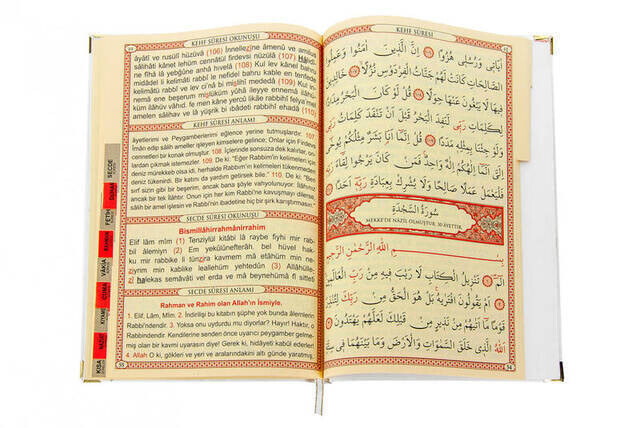 KEHF SÛRESİ OKUNUŞU
âyâtî ve rusulî hüzüvâ (106) İnnellezîne âmenû ve amilus
sâlihâti kânet lehüm cennâtül firdevsi nüzülâ (107) Hâlidî
ne fîhâ lâ yebğûne anhâ hıvelâ (108) Kul lev kânel bahru
midâdel li kelimâti rabbî le nefidel bahru kable en tenfede
kelimâtü rabbî ve lev ci'nâ bi mislihî mededâ (109) Kul in
nemâ ene beşerum mislüküm yûhâ ileyye ennemâ ilâhü
küm ilâhüv vâhıd. fe men kâne yercû likâe rabbihî felya'mel
amelen sâlihav ve lâ yüşrik bi ıbâdeti rabbihî ehadâ (110)
KEHF SÛRESİ ANLAMI
âyetlerimi ve Peygamberlerimi eğlence yerine tutmuşlardır. 107.
İman edip sâlih ameller işleyen kimselere gelince; Onlar için Firdevs
cennetleri bir konak olmuştur. 108. İçlerinde sonsuza dek kalırlar,
lardan çıkmak istemezler. 109. De ki: "Eğer Rabbim'in kelimeleri için
deniz mürekkeb olsa idi, herhalde Rabbim'in kelimeleri tükenmeden
deniz tükenirdi. Bir katını da yardım getirsek bile." 110. De ki: "Ben
sırf sizin gibi bir beşerim, ancak bana şöyle vahyolunuyor: İlâhınız
ancak bir tek ilâhtır. Onun için her kim Rabbi'ne kavuşmayı dilerse,
sâlih amel işlesin ve Rabbi'nin ibadetine hiç bir şirk karıştırmasın."
SECDE SÛRESİ OKUNUŞU
Bismillâhirrahmânirrahîm
Elif lâm mîm (1) Tenzîylül kitâbi lâ raybe fîyhi mir rab-
bil âlemiyn (2) Em yekûlûnefterâh. bel hüvel hak-
ku mir rabbike li tünzira kavmem mâ etâhüm min ne-
ziyrim min kablike leallehüm yehtedûn (3) Allâhülle-
zî halekas semâvâti vel erda ve mâ beynehümâ fî sitteti
SECDE SÛRESİ ANLAMI
Rahman ve Rahim olan Allah'ın İsmiyle.
1. Elif, Lâm, Mîm. 2. İndirilişi bu kitabın şüphe yok bunda âlemlerin
Rabbi'ndendir. 3. Yoksa onu uydurdu mu diyorlar? Hayır! Haktır, o
Rabbindendir. Kendilerine senden önce uyarıcı peygamber gelme-
miş olan bir kavmi uyarasın diye! Gerek ki, hidâyeti kabûl ederler!
4. Allah O ki, gökleri ve yeri ve aralarındakini altı günde yaratmış
SECDE
DUHAN
FETİH
RAHMAN
VÂKIA
CUMA
KIYAMET
KISA
KEHF SÛRESİ
اٰيَاتٖى وَرُسُلٖى هُزُوًا اِنَّ الَّذٖينَ اٰمَنُوا وَعَمِلُوا
الصَّالِحَاتِ كَانَتْ لَهُمْ جَنَّاتُ الْفِرْدَوْسِ نُزُلًا خَالِدٖينَ
فٖيهَا لَا يَبْغُونَ عَنْهَا حِوَلًا قُلْ لَوْ كَانَ الْبَحْرُ مِدَادًا
لِكَلِمَاتِ رَبّٖى لَنَفِدَ الْبَحْرُ قَبْلَ اَنْ تَنْفَدَ كَلِمَاتُ رَبّٖى
وَلَوْ جِئْنَا بِمِثْلِهٖ مَدَدًا قُلْ اِنَّمَا اَنَا بَشَرٌ مِثْلُكُمْ يُوحٰى
اِلَىَّ اَنَّمَا اِلٰهُكُمْ اِلٰهٌ وَاحِدٌ فَمَنْ كَانَ يَرْجُوا لِقَاءَ رَبِّهٖ
فَلْيَعْمَلْ عَمَلًا صَالِحًا وَلَا يُشْرِكْ بِعِبَادَةِ رَبِّهٖ اَحَدًا
سُورَةُ السَّجْدَةِ
MEKKE'DE NÂZİL OLMUŞTUR. 30 ÂYETTİR.
بِسْمِ اللّٰهِ الرَّحْمٰنِ الرَّحٖيمِ
الٓمٓ تَنْزٖيلُ الْكِتَابِ لَا رَيْبَ فٖيهِ مِنْ رَبِّ الْعَالَمٖينَ
اَمْ يَقُولُونَ افْتَرٰيهُ بَلْ هُوَ الْحَقُّ مِنْ رَبِّكَ لِتُنْذِرَ
قَوْمًا مَا اَتٰيهُمْ مِنْ نَذٖيرٍ مِنْ قَبْلِكَ لَعَلَّهُمْ يَهْتَدُونَ
اَللّٰهُ الَّذٖى خَلَقَ السَّمٰوَاتِ وَالْاَرْضَ وَمَا بَيْنَهُمَا فٖى سِتَّةِ